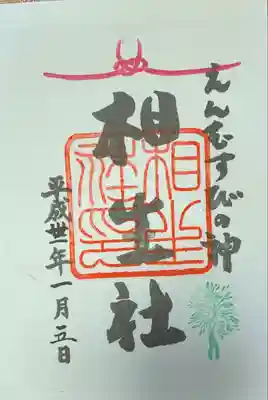 えんむすびの神
相生社
平成卅一年一月五日
相生社印